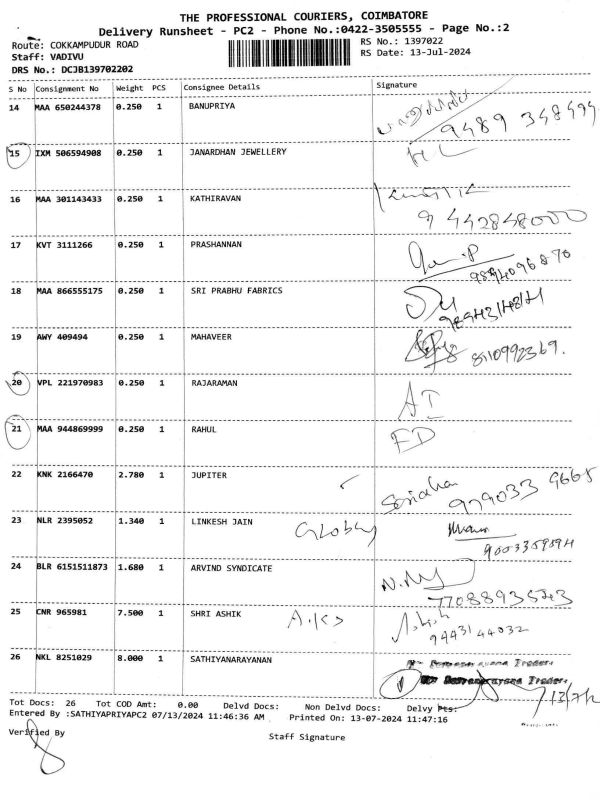 THE PROFESSIONAL COURIERS, COIMBATORE
Delivery Runsheet - PC2 - Phone No.:0422-3505555 - Page No.:2
Route: COKKAMPUDUR ROAD RS No.: 1397022
Staff: VADIVU RS Date: 13-Jul-2024
DRS No.: DCJB139702202
S No Consignment No Weight PCS Consignee Details Signature
14 MAA 650244378 0.250 1 BANUPRIYA
9489 348494
15 IXM 506594908 0.250 1 JANARDHAN JEWELLERY
16 MAA 301143433 0.250 1 KATHIRAVAN
9442848000
17 KVT 3111266 0.250 1 PRASHANNAN
9894096870
18 MAA 866555175 0.250 1 SRI PRABHU FABRICS
19 AWY 409494 0.250 1 MAHAVEER 8110992369.
20 VPL 221970983 0.250 1 RAJARAMAN
21 MAA 944869999 0.250 1 RAHUL
22 KNK 2166470 2.780 1 JUPITER
979033 9665
23 NLR 2395052 1.340 1 LINKESH JAIN
24 BLR 6151511873 1.680 1 ARVIND SYNDICATE
25 CNR 965981 7.500 1 SHRI ASHIK
9443144032
26 NKL 8251029 8.000 1 SATHIYANARAYANAN
Tot Docs: 26 Tot COD Amt: 0.00 Delvd Docs: Non Delvd Docs: Delvy Pts:
Entered By :SATHIYAPRIYAPC2 07/13/2024 11:46:36 AM Printed On: 13-07-2024 11:47:16
Verified By Staff Signature